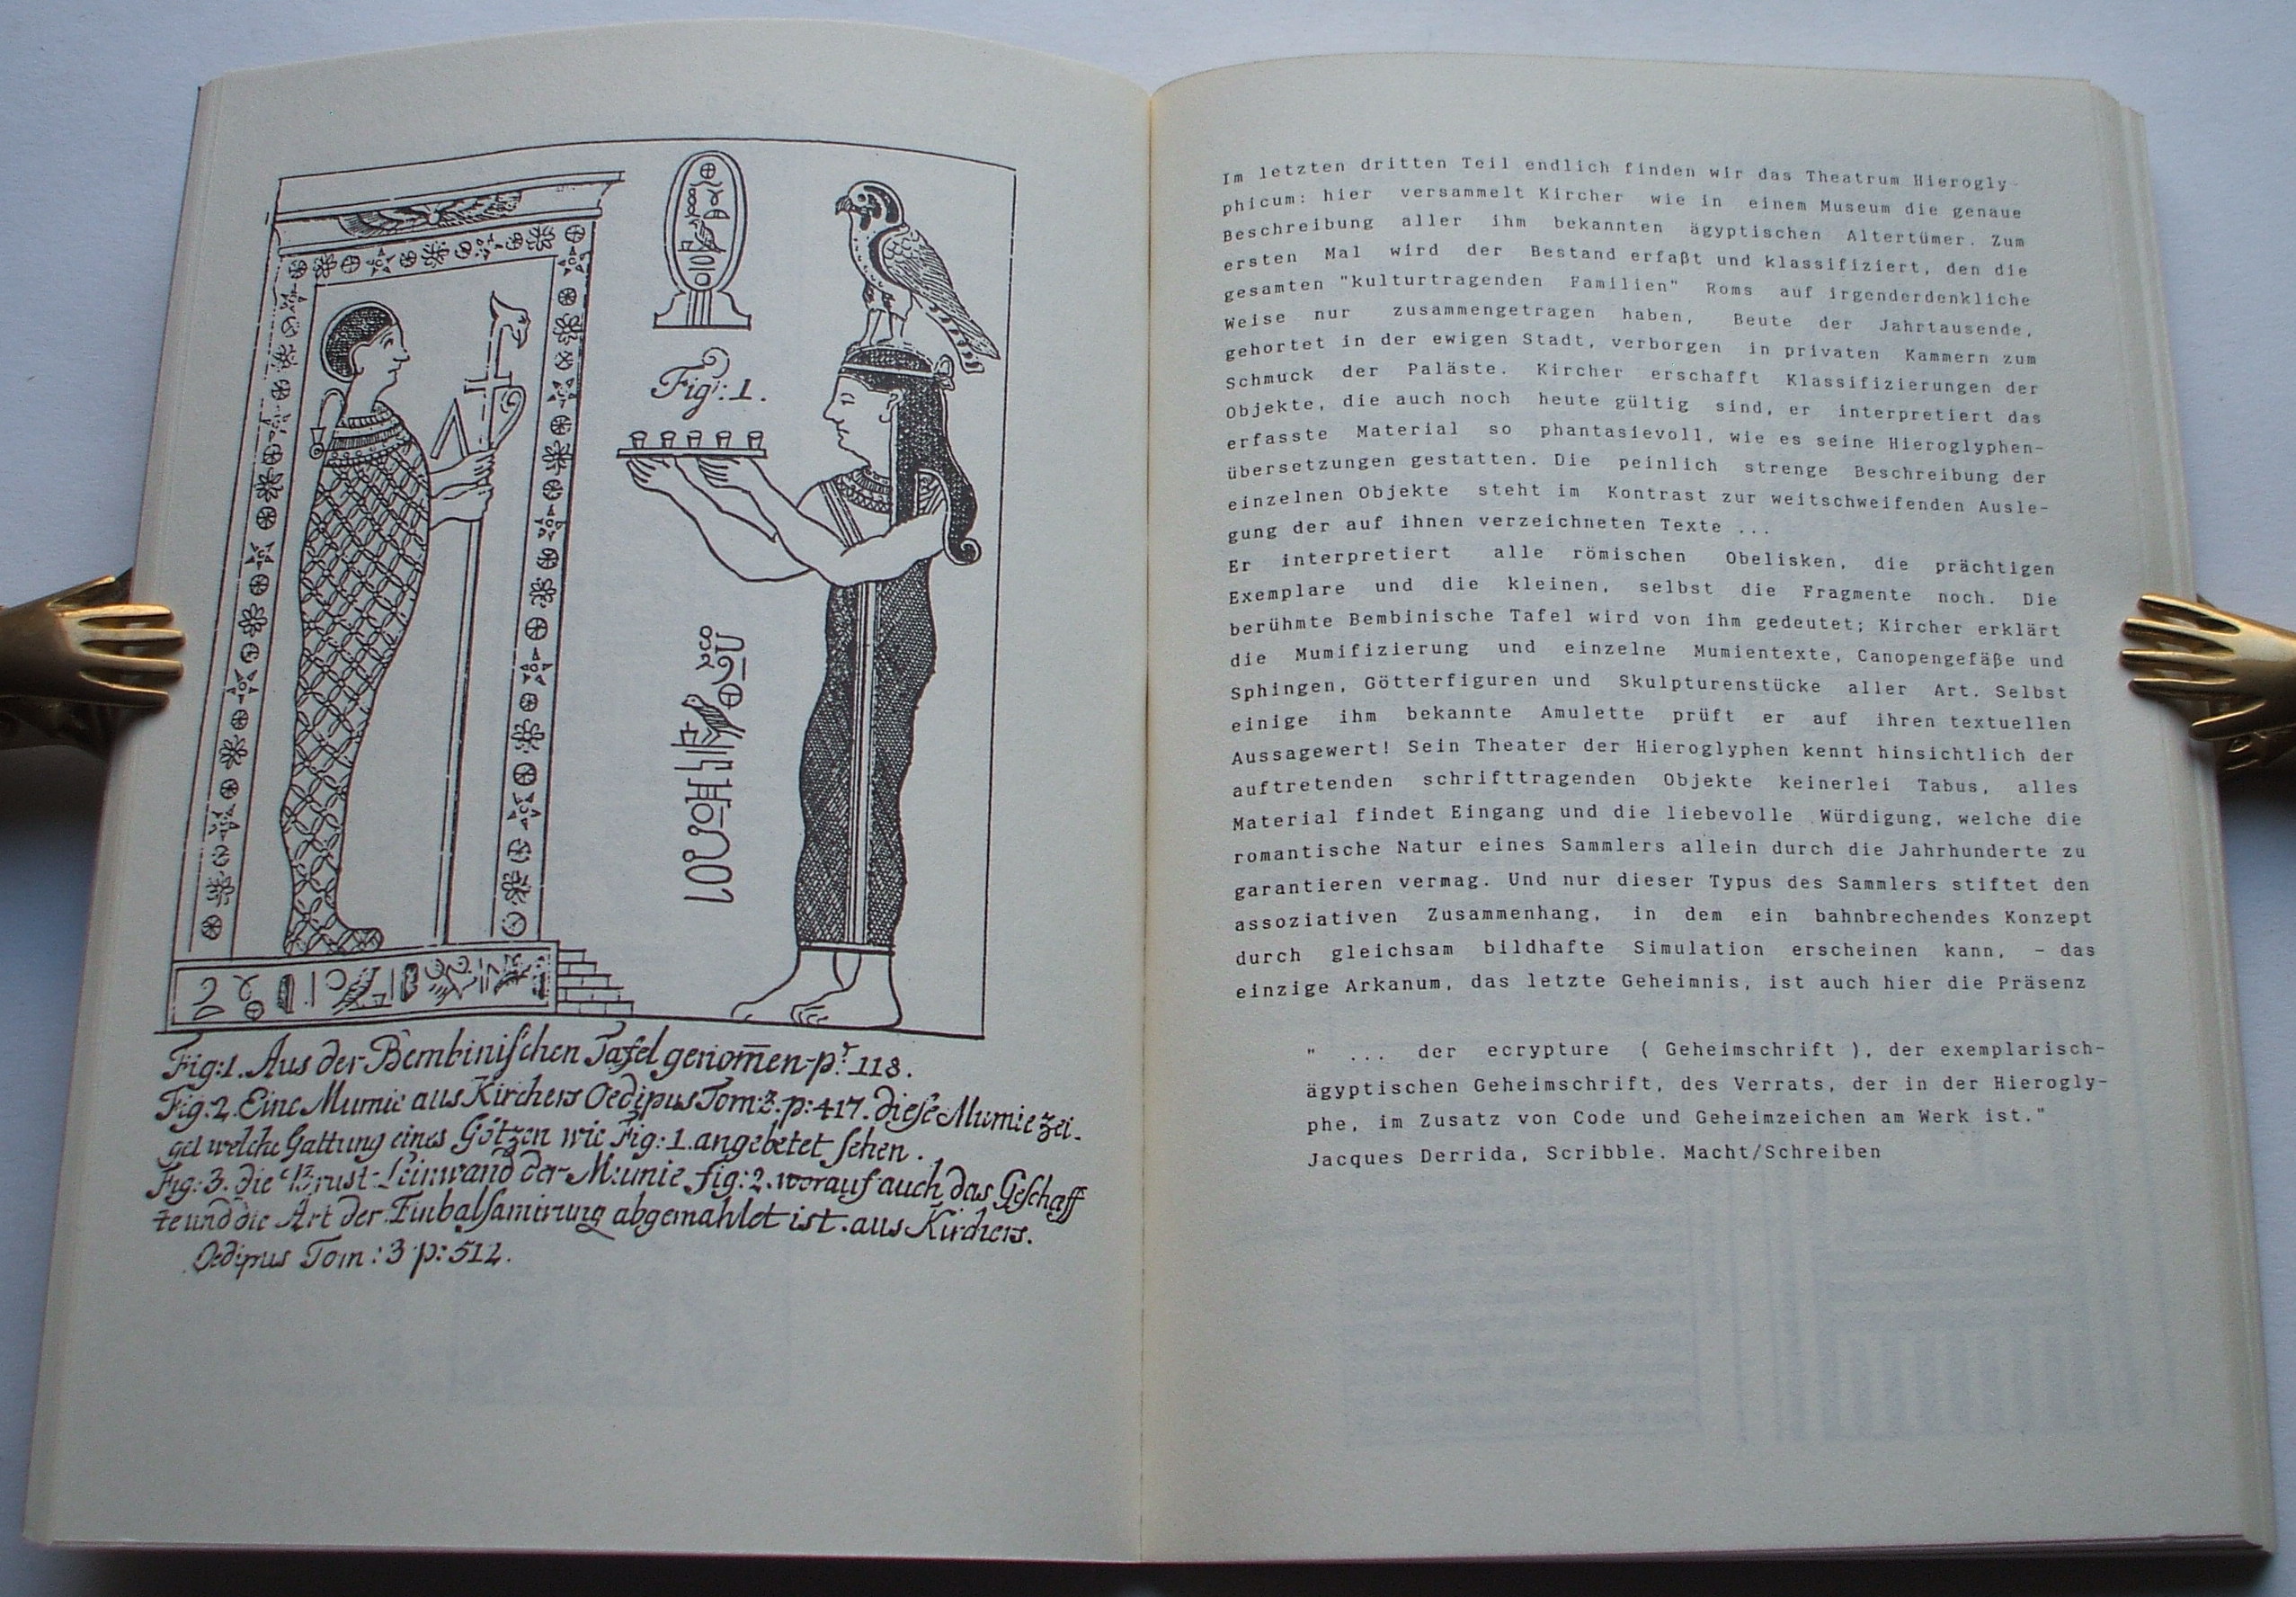 Fig: 1.
Fig: 1. Aus der Bembiniſchen Tafel genom̅en pr. 118.
Fig: 2. Eine Mumie aus Kirchers Oedipus Tom: 3. p: 417. dieſe Mumie zei-
get welche Gattung eines Götzen wie Fig: 1. angebetet ſehen.
Fig: 3. die Brust-Leinwand der Mumie fig: 2. worauf auch das Geſchäff
te und die Art der Einbalſamirung abgemahlet ist. aus Kirchers.
Oedipus Tom: 3 p: 512.
Im letzten dritten Teil endlich finden wir das Theatrum Hierogly-
phicum: hier versammelt Kircher wie in einem Museum die genaue
Beschreibung aller ihm bekannten ägyptischen Altertümer. Zum
ersten Mal wird der Bestand erfaßt und klassifiziert, den die
gesamten "kulturtragenden Familien" Roms auf irgenderdenkliche
Weise nur zusammengetragen haben, Beute der Jahrtausende,
gehortet in der ewigen Stadt, verborgen in privaten Kammern zum
Schmuck der Paläste. Kircher erschafft Klassifizierungen der
Objekte, die auch noch heute gültig sind, er interpretiert das
erfasste Material so phantasievoll, wie es seine Hieroglyphen-
übersetzungen gestatten. Die peinlich strenge Beschreibung der
einzelnen Objekte steht im Kontrast zur weitschweifenden Ausle-
gung der auf ihnen verzeichneten Texte ...
Er interpretiert alle römischen Obelisken, die prächtigen
Exemplare und die kleinen, selbst die Fragmente noch. Die
berühmte Bembinische Tafel wird von ihm gedeutet; Kircher erklärt
die Mumifizierung und einzelne Mumientexte, Canopengefäße und
Sphingen, Götterfiguren und Skulpturenstücke aller Art. Selbst
einige ihm bekannte Amulette prüft er auf ihren textuellen
Aussagewert! Sein Theater der Hieroglyphen kennt hinsichtlich der
auftretenden schrifttragenden Objekte keinerlei Tabus, alles
Material findet Eingang und die liebevolle Würdigung, welche die
romantische Natur eines Sammlers allein durch die Jahrhunderte zu
garantieren vermag. Und nur dieser Typus des Sammlers stiftet den
assoziativen Zusammenhang, in dem ein bahnbrechendes Konzept
durch gleichsam bildhafte Simulation erscheinen kann, - das
einzige Arkanum, das letzte Geheimnis, ist auch hier die Präsenz
" ... der ecrypture ( Geheimschrift ), der exemplarisch-
ägyptischen Geheimschrift, des Verrats, der in der Hierogly-
phe, im Zusatz von Code und Geheimzeichen am Werk ist."
Jacques Derrida, Scribble. Macht/Schreiben